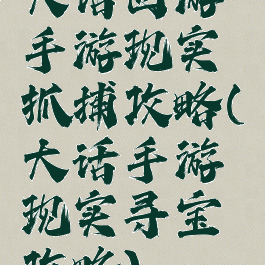 大话西游
手游现实
抓捕攻略(
大话手游
现实寻宝
攻略)